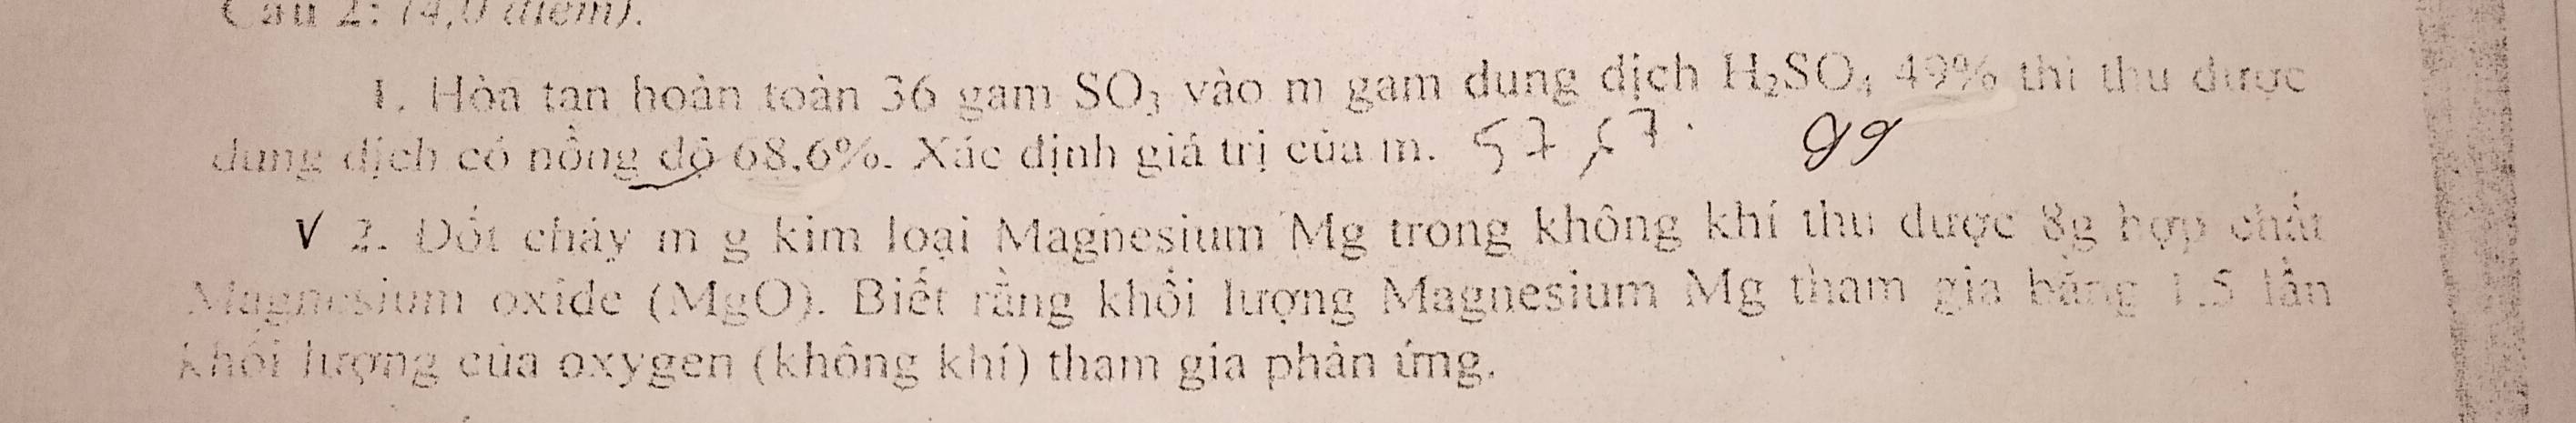 Câu 2: (4,0 điểm).
1. Hòa tan hoàn toàn 36 gam SO₃ vào m gam dung dịch H₂SO₄ 49% thì thu được
dung dịch có nồng độ 68,6%. Xác định giá trị của m. 57,57.
√ 2. Đốt cháy m g kim loại Magnesium Mg trong không khí thu được 8g hợp chất
Magnesium oxide (MgO). Biết rằng khối lượng Magnesium Mg tham gia bằng 1,5 lần
khối lượng của oxygen (không khí) tham gia phản ứng.